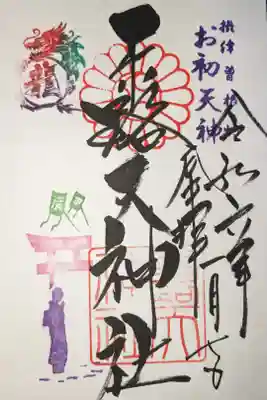 摂津 曽根崎
お初天神
令和六年一月
奉拝
露天神社
龍